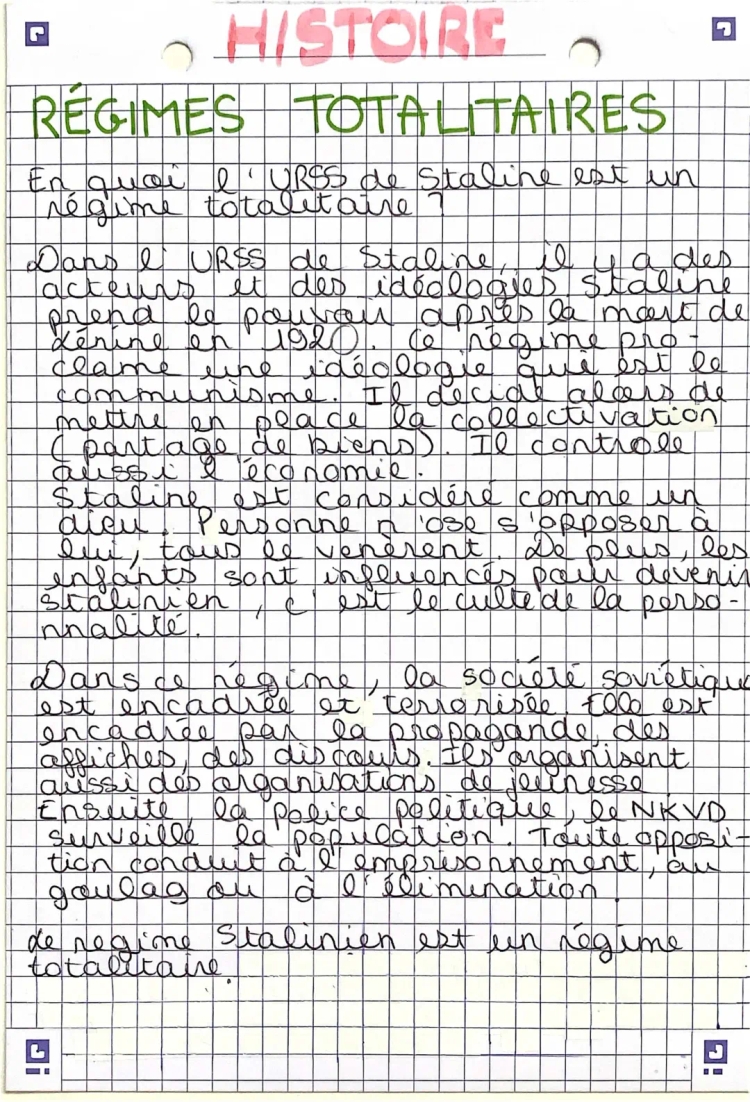 HISTOIRE
RÉGIMES TOTALITAIRES
En quoi l'URSS de Staline est un
régime totalitaire ?
Dans l'URSS de Staline, il y a des
acteurs et des idéologies Staline
prend le pouvoir après la mort de
Lénine en 1920. Ce régime pro-
clame une idéologie qui est le
communisme. Il décide alors de
mettre en place la collectivation
(partage de biens). Il controle
aussi l'économie.
Staline est considéré comme un
dieu. Personne n'ose s'opposer à
lui, tous le venèrent. De plus, les
enfants sont influencés pour devenir
stalinien, c'est le culte de la perso-
nnalité.
Dans ce régime, la société soviétique
est encadrée et terrorisée. Elle est
encadrée par la propagande, des
affiches, des discours. Ils organisent
aussi des organisations de jeunesse
Ensuite, la police politique, le NKVD
surveille la population. Toute opposi-
tion conduit à l'emprisonnement, au
goulag ou à l'élimination.
Le regime Stalinien est un régime
totalitaire.